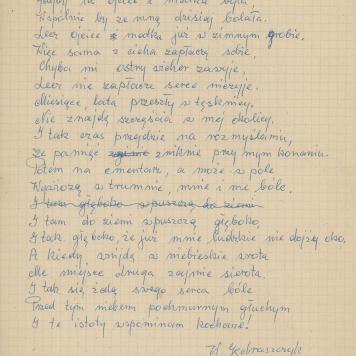 Gdyby tu ojciec i matka była
Wspólnie by ze mną dzisiaj bolała.
Lecz ojciec i matka już w zimnym grobie,
Więc sama z cicha zapłaczę sobie,
Chyba mi ostry wicher zawyje,
Lecz nie zapłacze serce niczyje.
Miesiące, lata przeszły w tęsknicy,
Nie znajdą szczęścia w mej okolicy.
I tak czas przejdzie na rozmyślaniu,
Że pamięć zniknie przy mym konaniu.
Potem na cmentarz, a może w pole
Wywiozą w trumnie, mnie i me bóle.
I tam głęboko wpuszczą do ziemi
I tam do ziemi wpuszczą głęboko,
I tak głęboko, że już mnie ludzkie nie dojżą oko,
A kiedy wnijdą w niebieskie wrota
Me miejsce druga zajmie sierota,
I tak się żalą swego serca bóle
Przed tym niebem pochmurnym głuchym
I te istoty wspomnam kochane.